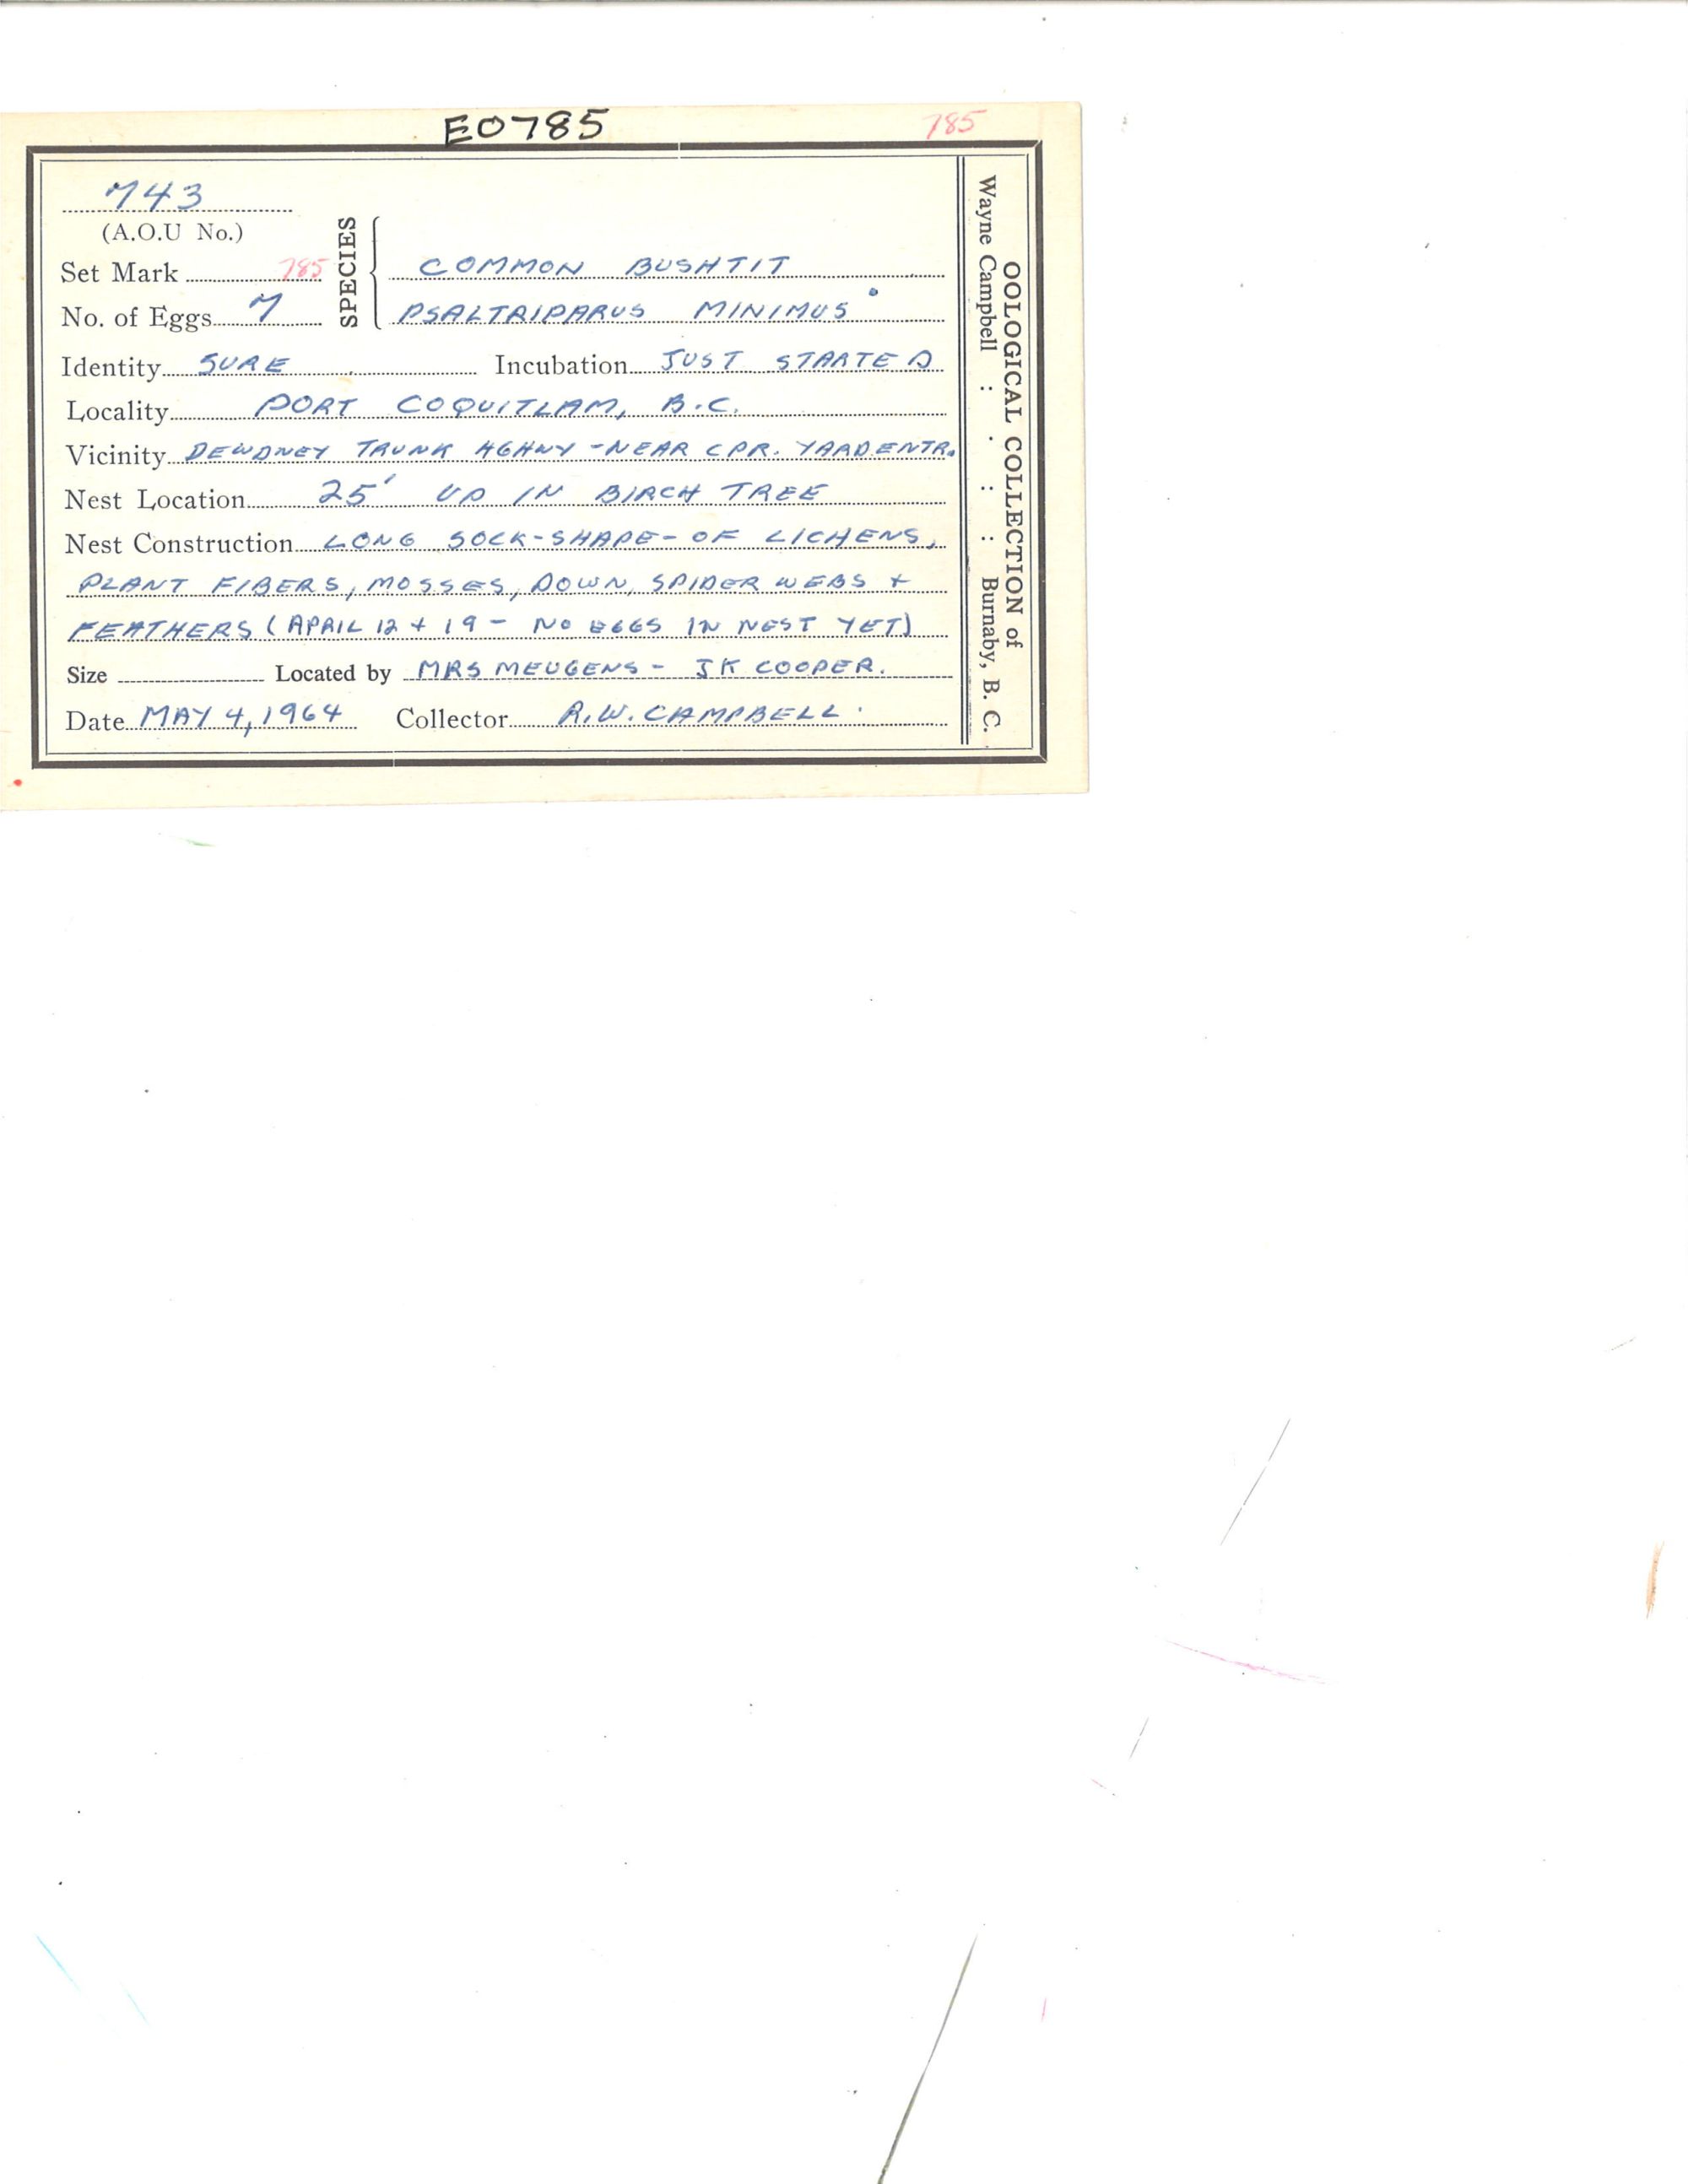 E0785
785
743
(A.O.U No.)
Set Mark 785
No. of Eggs 7
SPECIES
COMMON BUSHTIT
PSALTRIPARUS MINIMUS
Identity SURE Incubation JUST STARTED
Locality PORT COQUITLAM, B.C.
Vicinity DEWDNEY TRUNK HGHWY - NEAR CPR. YARD ENTR.
Nest Location 25' UP IN BIRCH TREE
Nest Construction LONG SOCK-SHAPE- OF LICHENS,
PLANT FIBERS, MOSSES, DOWN, SPIDER WEBS +
FEATHERS (APRIL 12 + 19 - NO EGGS IN NEST YET)
Size Located by MRS MEUGENS - JK COOPER.
Date MAY 4, 1964 Collector R.W. CAMPBELL.
OOLOGICAL COLLECTION of
Wayne Campbell : : : : Burnaby, B. C.